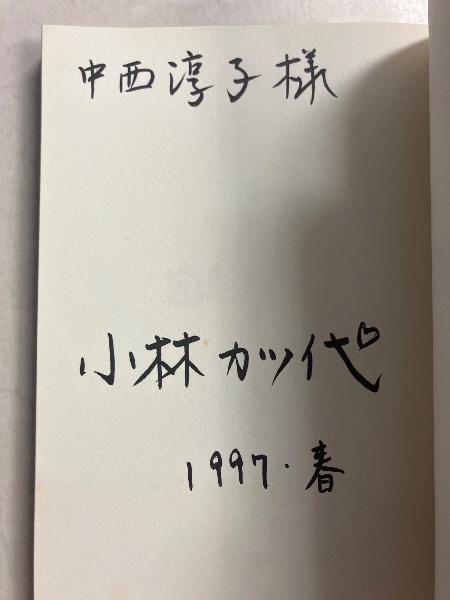 中西淳子様
小林カツ代
1997.春